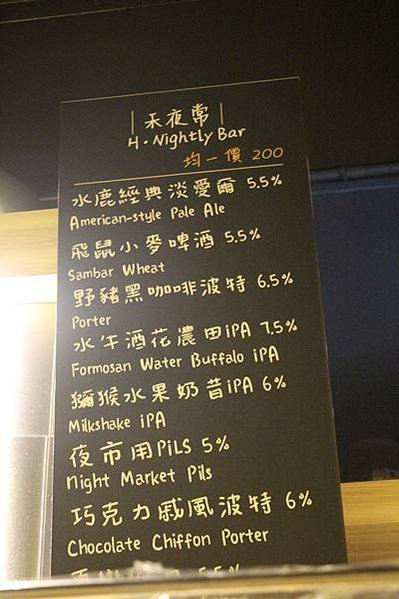 禾夜常
H·Nightly Bar
均一價 200
水鹿經典淡愛爾 5.5%
American-style Pale Ale
飛鼠小麥啤酒 5.5%
Sambar Wheat
野豬黑咖啡波特 6.5%
Porter
水牛酒花農田iPA 7.5%
Formosan Water Buffalo iPA
獼猴水果奶昔iPA 6%
Milkshake iPA
夜市用PiLS 5%
Night Market Pils
巧克力戚風波特 6%
Chocolate Chiffon Porter